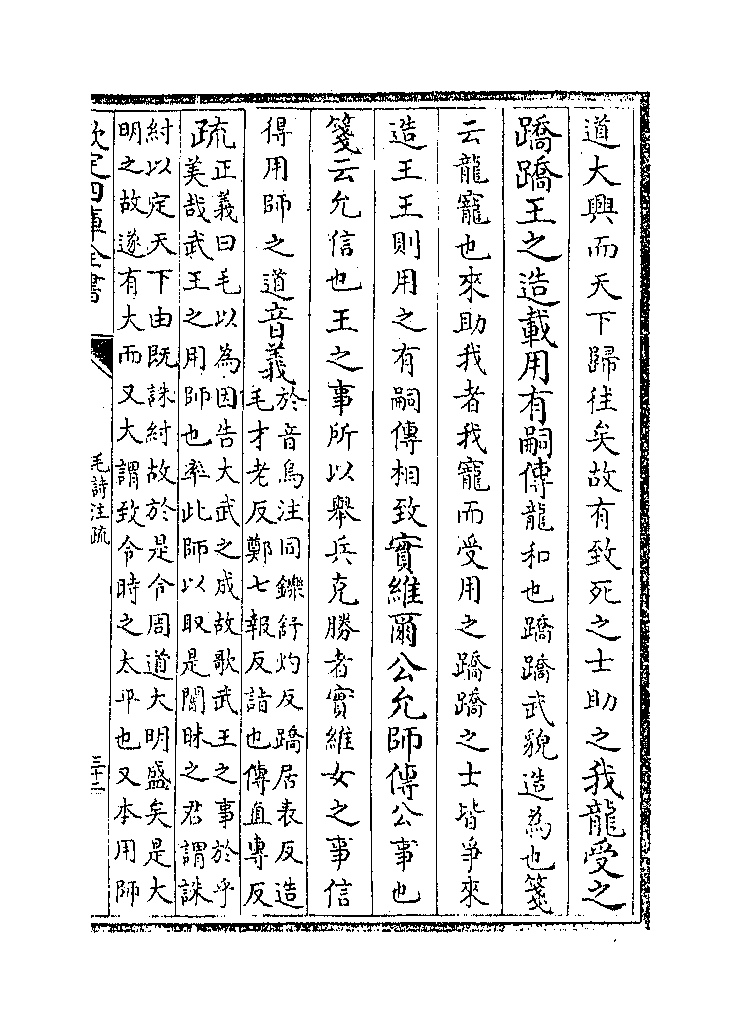 道大興而天下歸往矣故有致死之士助之我龍受之
蹻蹻王之造載用有嗣傳龍和也蹻蹻武貌造為也箋
云龍寵也來助我者我寵而受用之蹻蹻之士皆爭來
造王王則用之有嗣傳相致實維爾公允師傳公事也
箋云允信也王之事所以舉兵克勝者實維女之事信
得用師之道音義
於音烏注同鑠舒灼反蹻居表反造
毛才老反鄭七報反詣也傳直專反
疏
正義曰毛以為因告大武之成故歌武王之事於乎
美哉武王之用師也率此師以取是闇昧之君謂誅
紂以定天下由既誅紂故於是令周道大明盛矣是大
明之故遂有大而又大謂致今時之太平也又本用師
欽定四庫全書
毛詩注疏
三十二